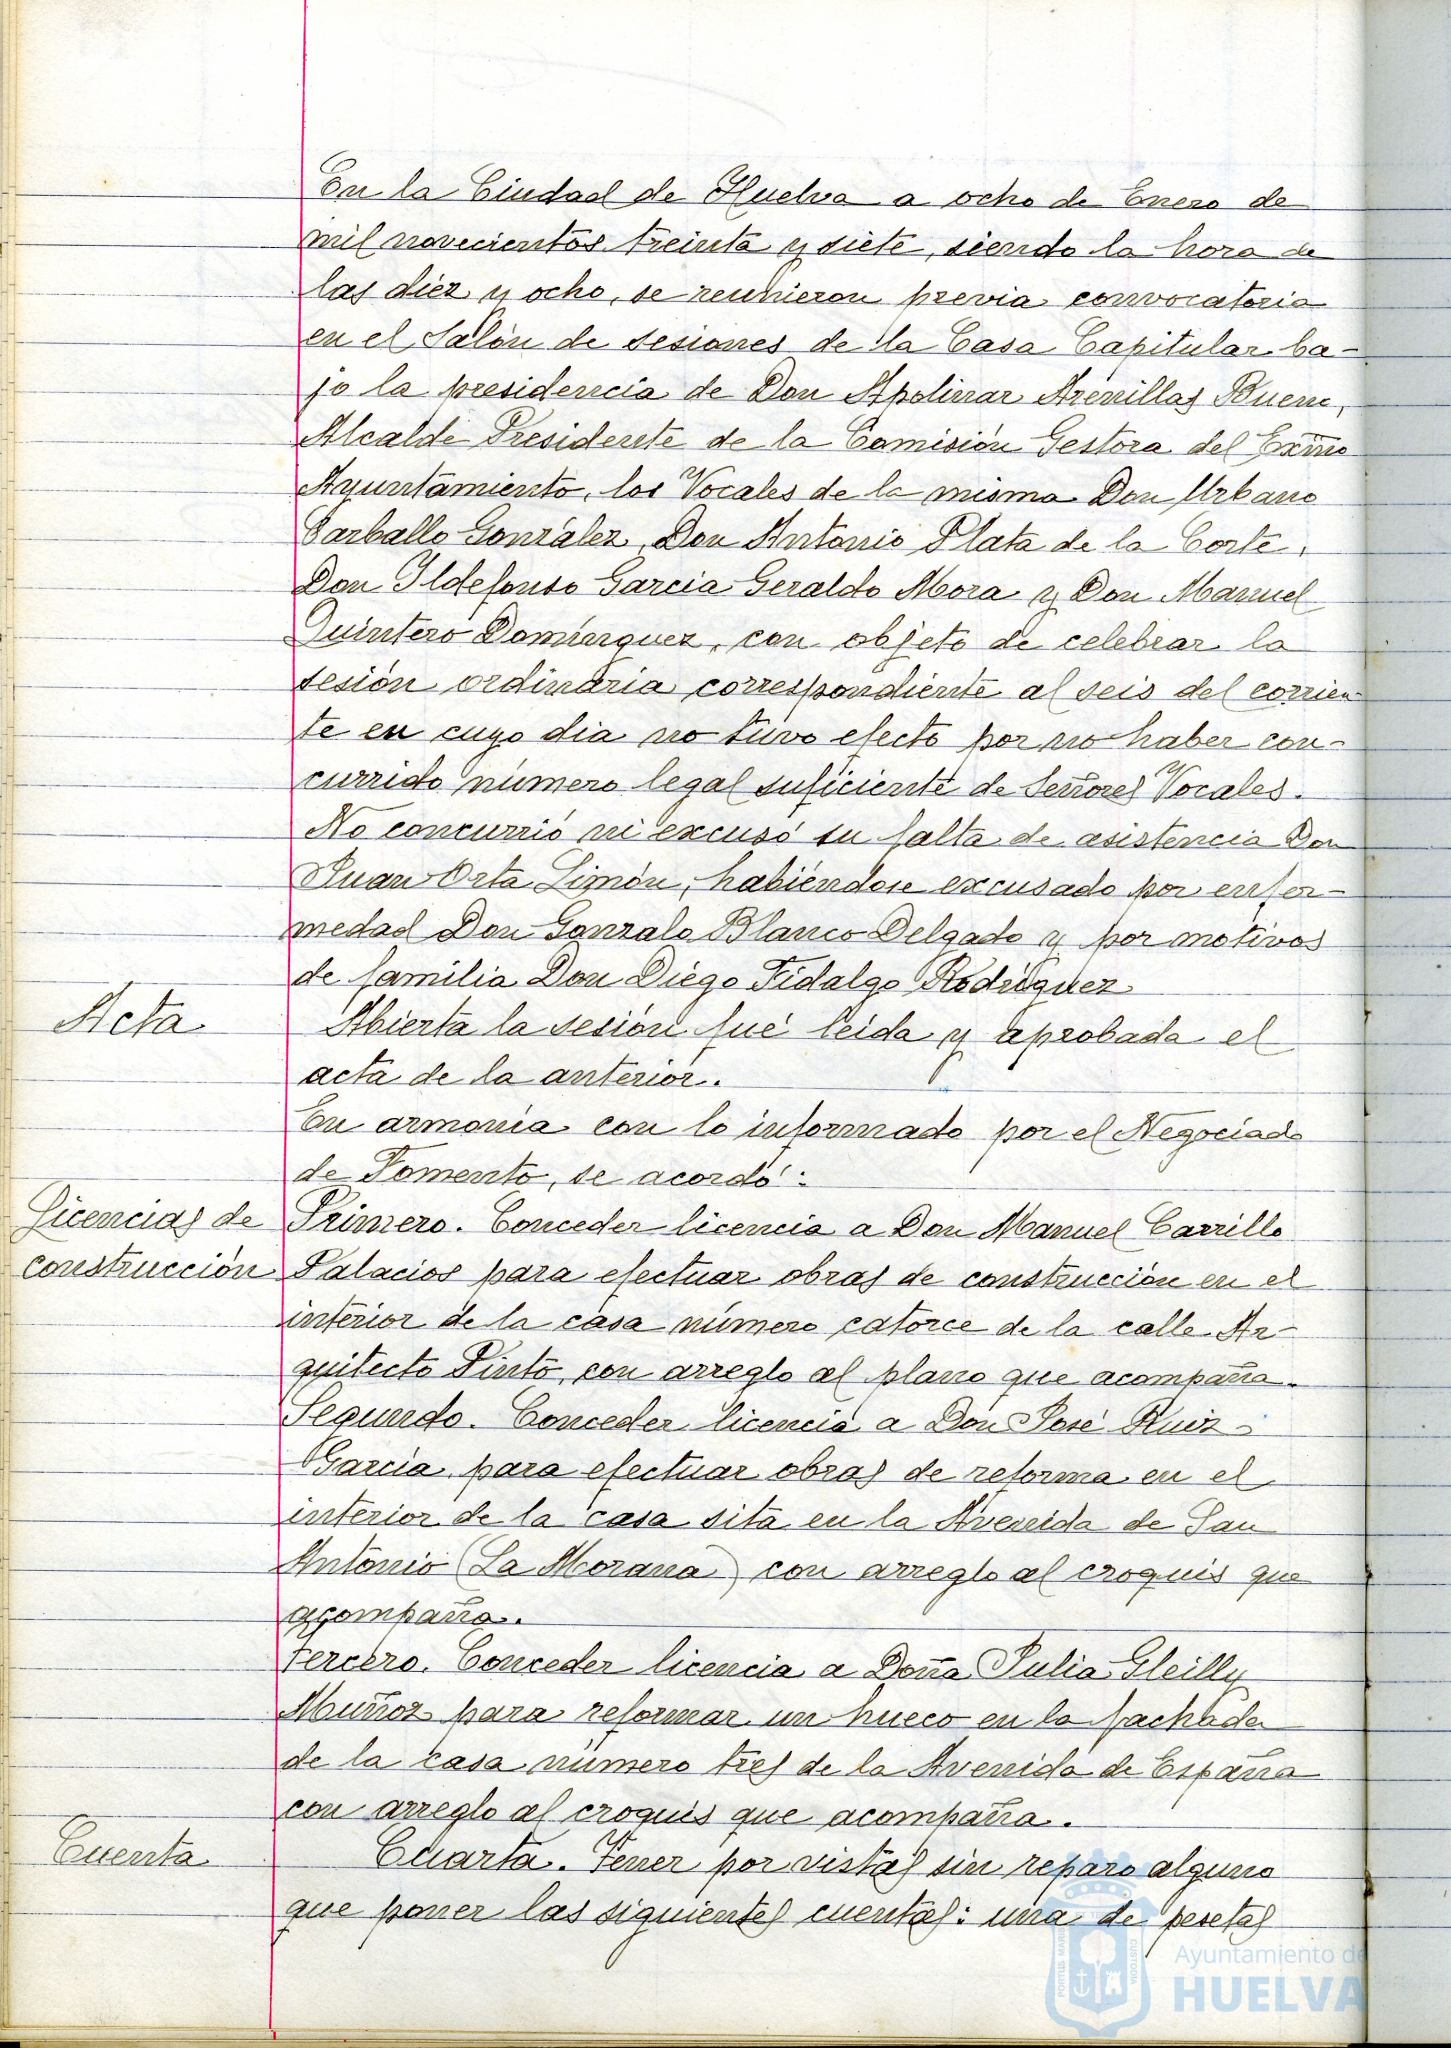 En la Ciudad de Huelva a ocho de Enero de
mil novecientos treinta y siete, siendo la hora de
las diez y ocho, se reunieron previa convocatoria
en el Salón de sesiones de la Casa Capitular ba-
jo la presidencia de Don Apolinar Arenillas Bueno,
Alcalde Presidente de la Comisión Gestora del Exmo
Ayuntamiento, los Vocales de la misma Don Urbano
Carballo González, Don Antonio Plata de la Corte,
Don Ildefonso Garcia Geraldo Mora y Don Manuel
Quintero Domínguez, con objeto de celebrar la
sesión ordinaria correspondiente al seis del corrien-
te en cuyo dia no tuvo efecto por no haber con-
currido número legal suficiente de Señores Vocales.
No concurrió ni excusó su falta de asistencia Don
Juan Orta Limón, habiéndose excusado por enfer-
medad Don Gonzalo Blanco Delgado y por motivos
de familia Don Diego Fidalgo Rodriguez.
Acta
Abierta la sesión fué leida y aprobada el
acta de la anterior.
En armonia con lo informado por el Negociado
de Fomento, se acordó:
Licencias de
construcción
Primero. Conceder licencia a Don Manuel Carrillo
Palacios para efectuar obras de construcción en el
interior de la casa número catorce de la calle Ar-
quitecto Pinto, con arreglo al plano que acompaña.
Segundo. Conceder licencia a Don José Ruiz
García para efectuar obras de reforma en el
interior de la casa sita en la Avenida de San
Antonio (La Morana) con arreglo al croquis que
acompaña.
Tercero. Conceder licencia a Doña Julia Gleilly
Muñoz para reformar un hueco en la fachada
de la casa número tres de la Avenida de España
con arreglo al croquis que acompaña.
Cuenta
Cuarta. Tener por vistas sin reparo alguno
que poner las siguientes cuentas: una de pesetas
PORTUS MARIS
CUSTODIA
Ayuntamiento de
HUELVA